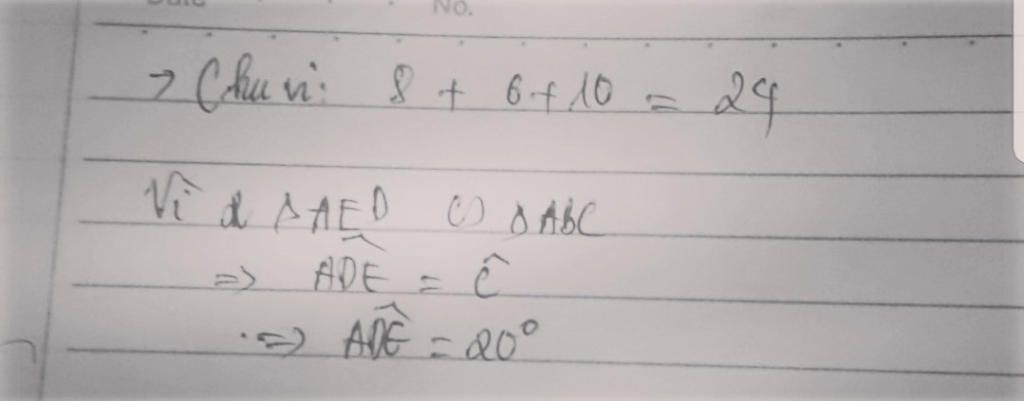 No.
→ Chu vi: 8 + 6 + 10 = 24
Vì Δ AED ∽ Δ ABC
=> \widehat{ADE} = \widehat{C}
=> \widehat{ADE} = 20°